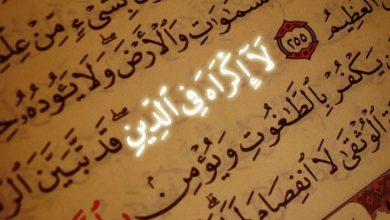 بِشَىْءٍ مِّنْ
ٱلسَّمَٰوَٰتِ وَٱلْأَرْضَ وَلَا يَـُٔودُهُۥ
ٱلْعَظِيمُ ٢٥٥ لَآ إِكْرَاهَ فِى ٱلدِّينِ قَد تَّبَيَّنَ
يَكْفُرْ بِٱلطَّٰغُوتِ وَيُؤْمِنۢ
ٱلْوُثْقَىٰ لَا ٱنفِصَامَ لَهَا